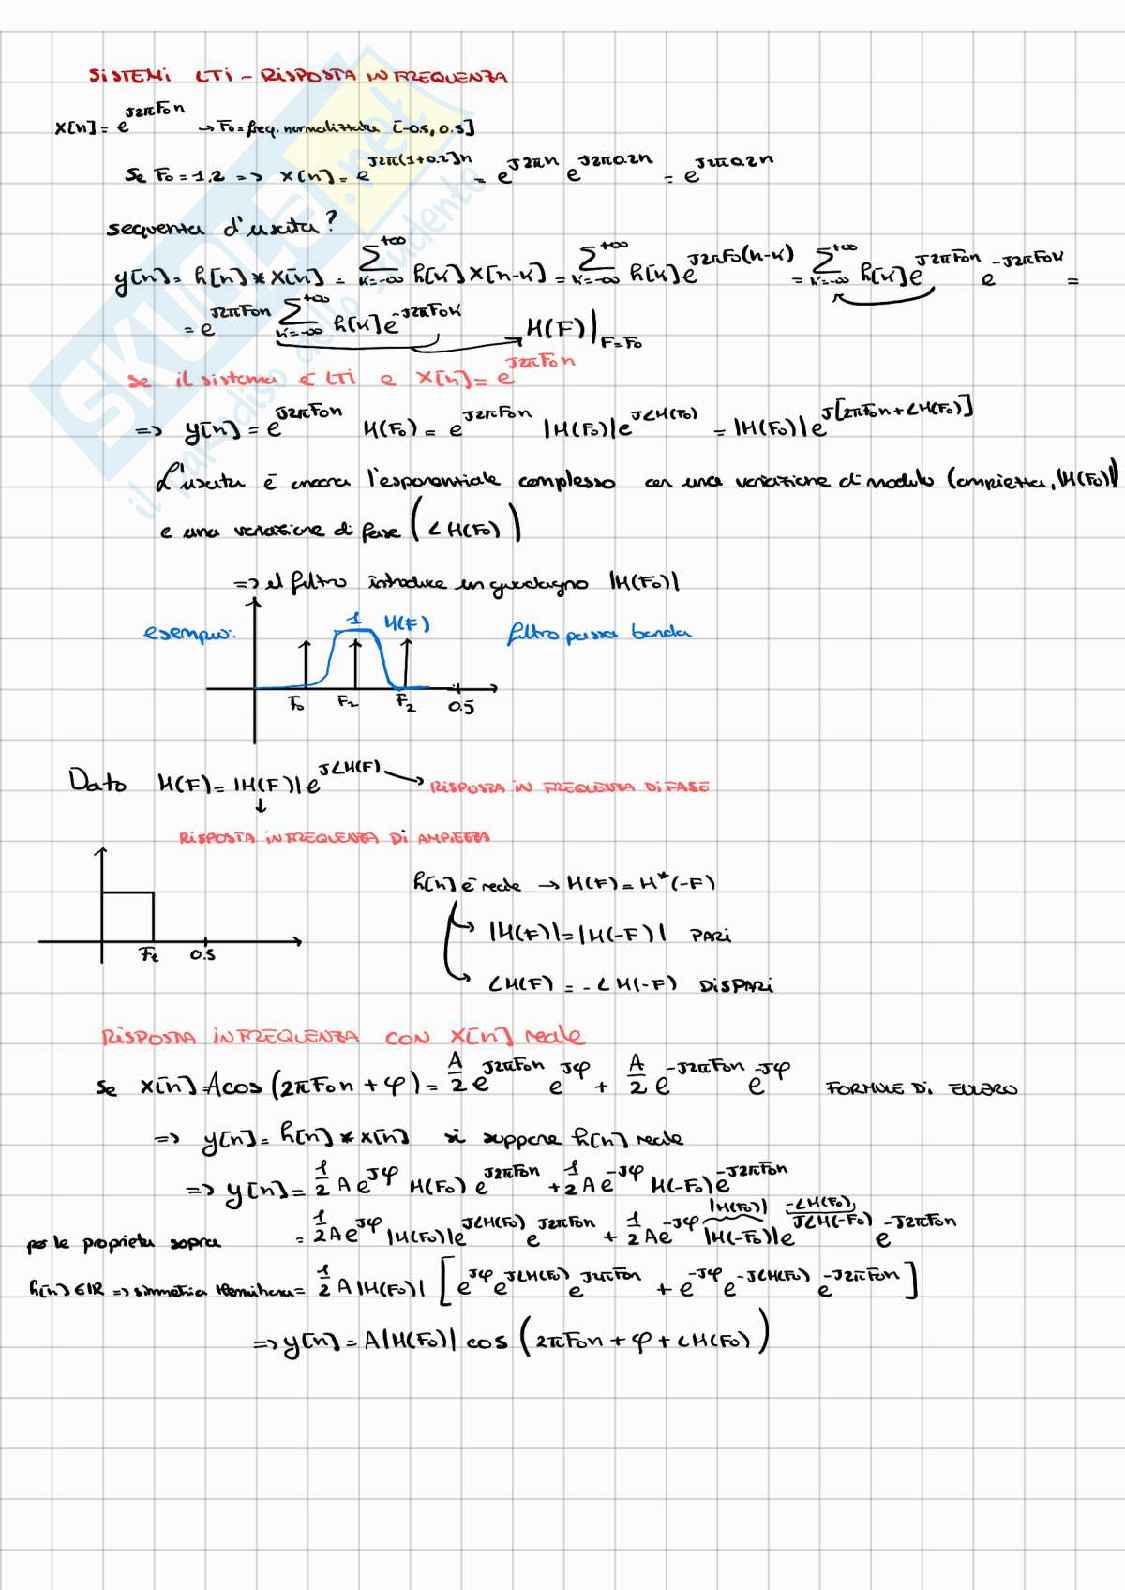 SISTEMI LTI - RISPOSTA IN FREQUENZA
x[n] = e^{J2πF₀n} → F₀ = freq. normalizzata [-0.5, 0.5]
Se F₀ = 1,2 => x[n] = e^{J2π(1+0.2)n} = e^{J2πn} e^{J2π0.2n} = e^{J2π0.2n}
sequenza d'uscita?
y[n] = h[n] * x[n] = Σ_{k=-∞}^{+∞} h[k] x[n-k] = Σ_{k=-∞}^{+∞} h[k] e^{J2πF₀(n-k)} = Σ_{k=-∞}^{+∞} h[k] e^{J2πF₀n} e^{-J2πF₀k} =
= e^{J2πF₀n} Σ_{k=-∞}^{+∞} h[k] e^{-J2πF₀k} → H(F)|_{F=F₀}
se il sistema è LTI e x[n] = e^{J2πF₀n}
=> y[n] = e^{J2πF₀n} H(F₀) = e^{J2πF₀n} |H(F₀)| e^{J∠H(F₀)} = |H(F₀)| e^{J[2πF₀n+∠H(F₀)]}
L'uscita è ancora l'esponenziale complesso con una variazione di modulo (ampiezza, |H(F₀)|)
e una variazione di fase (∠H(F₀))
=> il filtro introduce un guadagno |H(F₀)|
esempio: 1 H(F) filtro passa banda
F₀ F₂ F₂ 0.5
Dato H(F) = |H(F)| e^{J∠H(F)} → RISPOSTA IN FREQUENZA DI FASE
↓
RISPOSTA IN FREQUENZA DI AMPIEZZA
h[n] è reale → H(F) = H*(-F)
|H(F)| = |H(-F)| PARI
Ft 0.5
∠H(F) = -∠H(-F) DISPARI
RISPOSTA IN FREQUENZA CON x[n] reale
Se x[n] = A cos(2πF₀n + φ) = A/2 e^{J2πF₀n} e^{Jφ} + A/2 e^{-J2πF₀n} e^{-Jφ} FORMULE DI EULERO
=> y[n] = h[n] * x[n] si suppone h[n] reale
=> y[n] = 1/2 A e^{Jφ} H(F₀) e^{J2πF₀n} + 1/2 A e^{-Jφ} H(-F₀) e^{-J2πF₀n}
|H(F₀)| -∠H(F₀)
per le proprietà sopra = 1/2 A e^{Jφ} |H(F₀)| e^{J∠H(F₀)} e^{J2πF₀n} + 1/2 A e^{-Jφ} |H(-F₀)| e^{J∠H(-F₀)} e^{-J2πF₀n}
h[n] ∈ IR => simmetria Hermitiana = 1/2 A |H(F₀)| [e^{Jφ} e^{J∠H(F₀)} e^{J2πF₀n} + e^{-Jφ} e^{-J∠H(F₀)} e^{-J2πF₀n}]
=> y[n] = A |H(F₀)| cos (2πF₀n + φ + ∠H(F₀))
SKUOLA.net
il paradiso dello studente